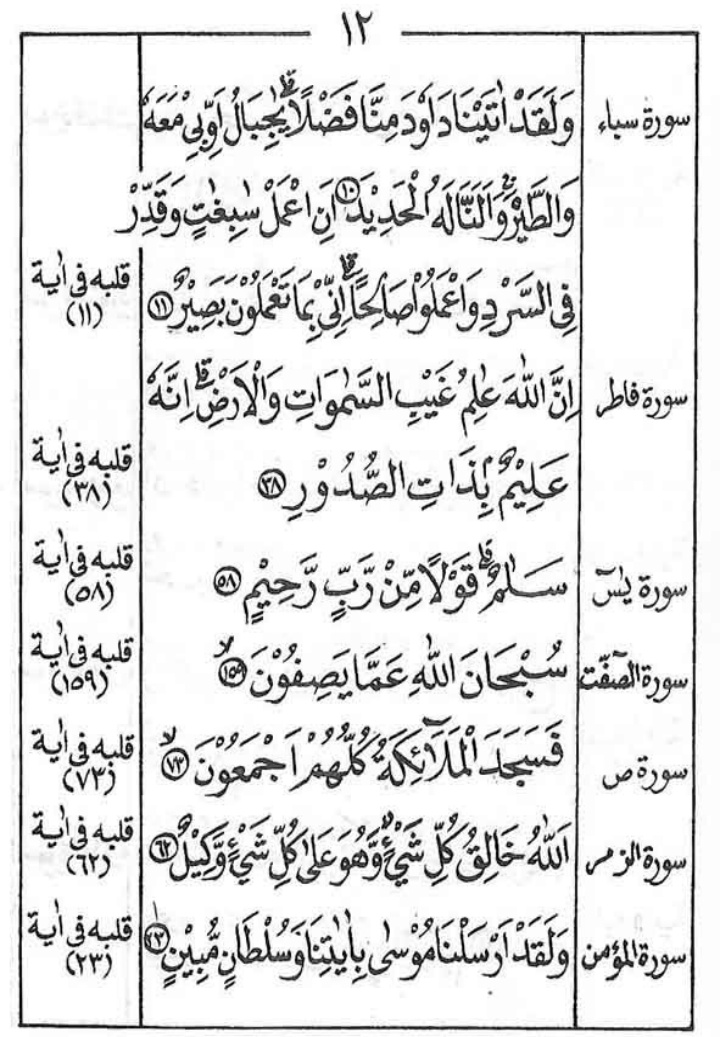 ١٢
سورة سباء وَلَقَدْ اٰتَيْنَا دَاوٗدَ مِنَّا فَضْلًا ؕ يٰجِبَالُ اَوِّبِىْ مَعَهٗ
وَالطَّيْرَ ۚ وَاَلَنَّا لَهُ الْحَدِيْدَ ۙ ﴿١٠﴾ اَنِ اعْمَلْ سٰبِغٰتٍ وَقَدِّرْ
فِى السَّرْدِ وَاعْمَلُوْا صَالِحًا ؕ اِنِّىْ بِمَا تَعْمَلُوْنَ بَصِيْرٌ ﴿١١﴾ قلبه فى اٰية (١١)
سورة فاطر اِنَّ اللّٰهَ عٰلِمُ غَيْبِ السَّمٰوَاتِ وَالْاَرْضِ ؕ اِنَّهٗ
عَلِيْمٌۢ بِذَاتِ الصُّدُوْرِ ﴿٣٨﴾ قلبه فى اٰية (٣٨)
سورة يٰسٓ سَلٰمٌ ۟ قَوْلًا مِّنْ رَّبٍّ رَّحِيْمٍ ﴿٥٨﴾ قلبه فى اٰية (٥٨)
سورة الصّٰٓفّٰت سُبْحَانَ اللّٰهِ عَمَّا يَصِفُوْنَ ۙ ﴿١٥٩﴾ قلبه فى اٰية (١٥٩)
سورة ص فَسَجَدَ الْمَلَآئِكَةُ كُلُّهُمْ اَجْمَعُوْنَ ۙ ﴿٧٣﴾ قلبه فى اٰية (٧٣)
سورة الزمر اَللّٰهُ خَالِقُ كُلِّ شَىْءٍ ؗ وَّهُوَ عَلٰى كُلِّ شَىْءٍ وَّكِيْلٌ ﴿٦٢﴾ قلبه فى اٰية (٦٢)
سورة المؤمن وَلَقَدْ اَرْسَلْنَا مُوْسٰى بِاٰيٰتِنَا وَسُلْطَانٍ مُّبِيْنٍ ۙ ﴿٢٣﴾ قلبه فى اٰية (٢٣)